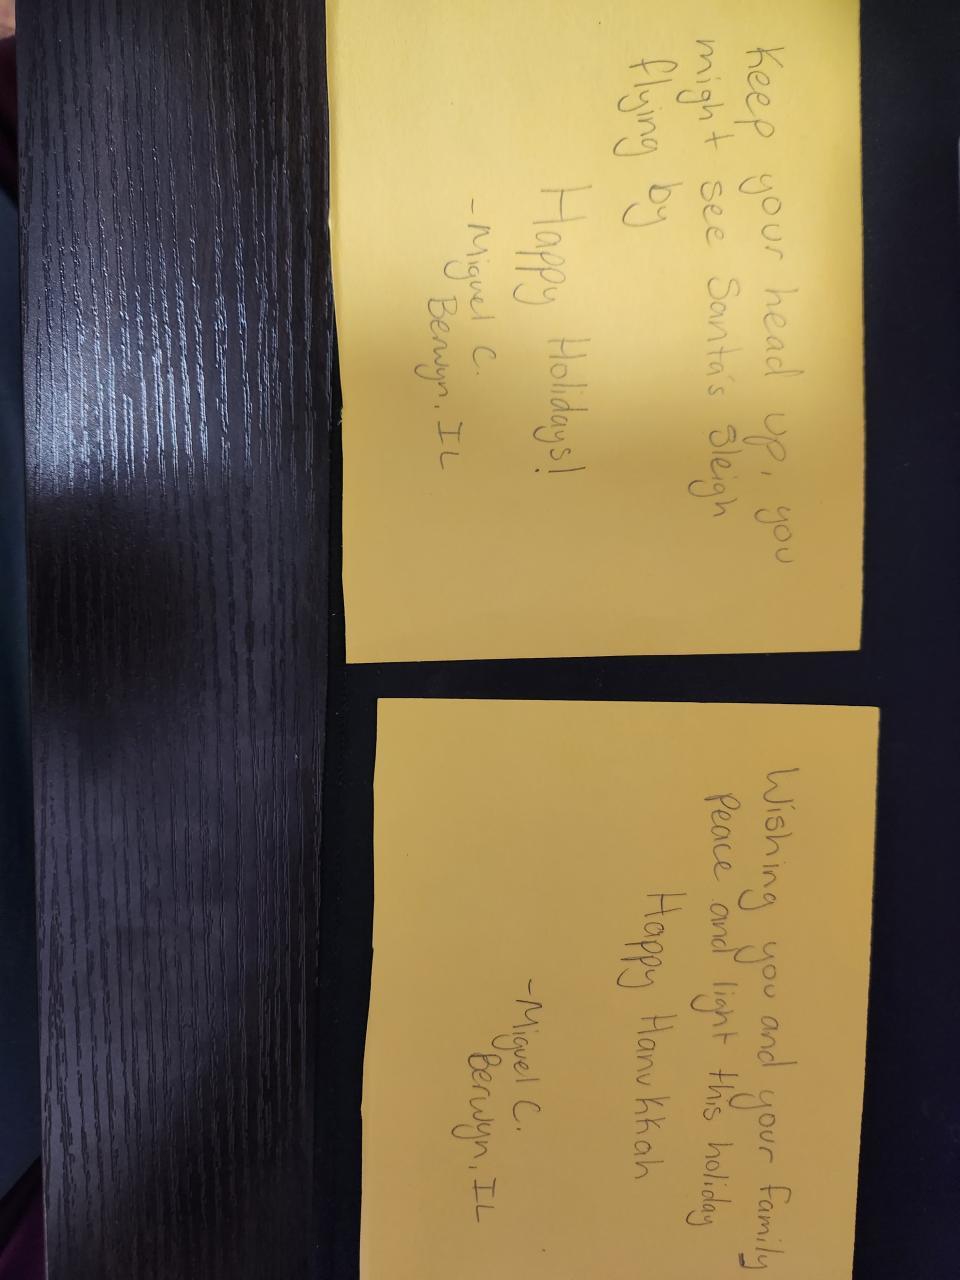 Keep your head up, you
might see Santa's Sleigh
flying by
Happy Holidays!
-Miguel C.
Berwyn, IL
Wishing you and your family
Peace and light this holiday
Happy Hanukkah
-Miguel C.
Berwyn, IL